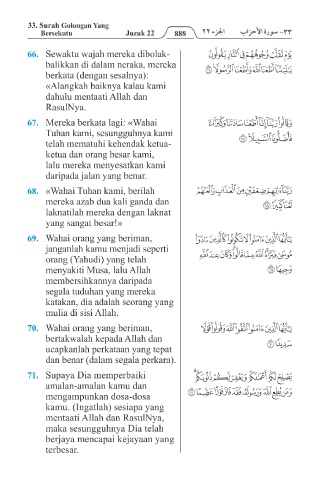 33. Surah Golongan Yang
Bersekutu Juzuk 22 888 الجزء ٢٢ ٣٣- سورة الأحزاب
66. Sewaktu wajah mereka dibolak-
balikkan di dalam neraka, mereka
berkata (dengan sesalnya):
«Alangkah baiknya kalau kami
dahulu mentaati Allah dan
RasulNya.
67. Mereka berkata lagi: «Wahai
Tuhan kami, sesungguhnya kami
telah mematuhi kehendak ketua-
ketua dan orang besar kami,
lalu mereka menyesatkan kami
daripada jalan yang benar.
68. «Wahai Tuhan kami, berilah
mereka azab dua kali ganda dan
laknatilah mereka dengan laknat
yang sangat besar!»
69. Wahai orang yang beriman,
janganlah kamu menjadi seperti
orang (Yahudi) yang telah
menyakiti Musa, lalu Allah
membersihkannya daripada
segala tuduhan yang mereka
katakan, dia adalah seorang yang
mulia di sisi Allah.
70. Wahai orang yang beriman,
bertakwalah kepada Allah dan
ucapkanlah perkataan yang tepat
dan benar (dalam segala perkara).
71. Supaya Dia memperbaiki
amalan-amalan kamu dan
mengampunkan dosa-dosa
kamu. (Ingatlah) sesiapa yang
mentaati Allah dan RasulNya,
maka sesungguhnya Dia telah
berjaya mencapai kejayaan yang
terbesar.
يَوْمَ تُقَلَّبُ وُجُوهُهُمْ فِي النَّارِ يَقُولُونَ
يَٰلَيْتَنَآ أَطَعْنَا ٱللَّهَ وَأَطَعْنَا ٱلرَّسُولَا۠ ٦٦
وَقَالُوا۟ رَبَّنَآ إِنَّآ أَطَعْنَا سَادَتَنَا وَكُبَرَآءَنَا
فَأَضَلُّونَا ٱلسَّبِيلَا۠ ٦٧
رَبَّنَآ ءَاتِهِمْ ضِعْفَيْنِ مِنَ ٱلْعَذَابِ وَٱلْعَنْهُمْ
لَعْنًا كَبِيرًا ٦٨
يَٰٓأَيُّهَا ٱلَّذِينَ ءَامَنُوا۟ لَا تَكُونُوا۟ كَٱلَّذِينَ ءَاذَوْا۟
مُوسَىٰ فَبَرَّأَهُ ٱللَّهُ مِمَّا قَالُوا۟ وَكَانَ عِندَ ٱللَّهِ
وَجِيهًا ٦٩
يَٰٓأَيُّهَا ٱلَّذِينَ ءَامَنُوا۟ ٱتَّقُوا۟ ٱللَّهَ وَقُولُوا۟ قَوْلًا
سَدِيدًا ٧٠
يُصْلِحْ لَكُمْ أَعْمَٰلَكُمْ وَيَغْفِرْ لَكُمْ ذُنُوبَكُمْ
وَمَن يُطِعِ ٱللَّهَ وَرَسُولَهُۥ فَقَدْ فَازَ فَوْزًا عَظِيمًا ٧١